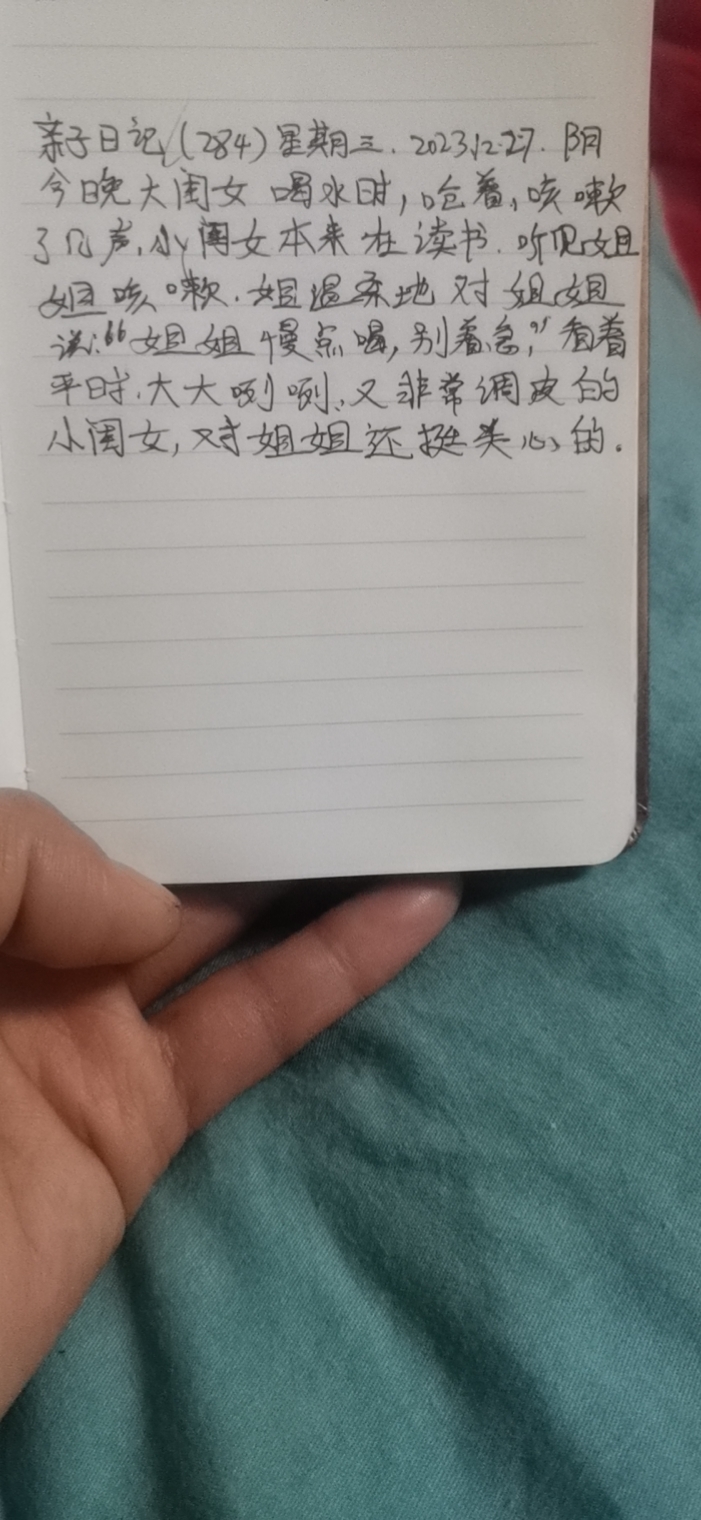 亲子日记(284)星期三.2023.12.27.阴
今晚大闺女喝水时,呛着,咳嗽
了几声,小闺女本来在读书.听见姐
姐咳嗽.姐温柔地对姐姐
说:“姐姐慢点喝,别着急,”看着
平时.大大咧咧、又非常调皮的
小闺女,对姐姐还挺关心的.